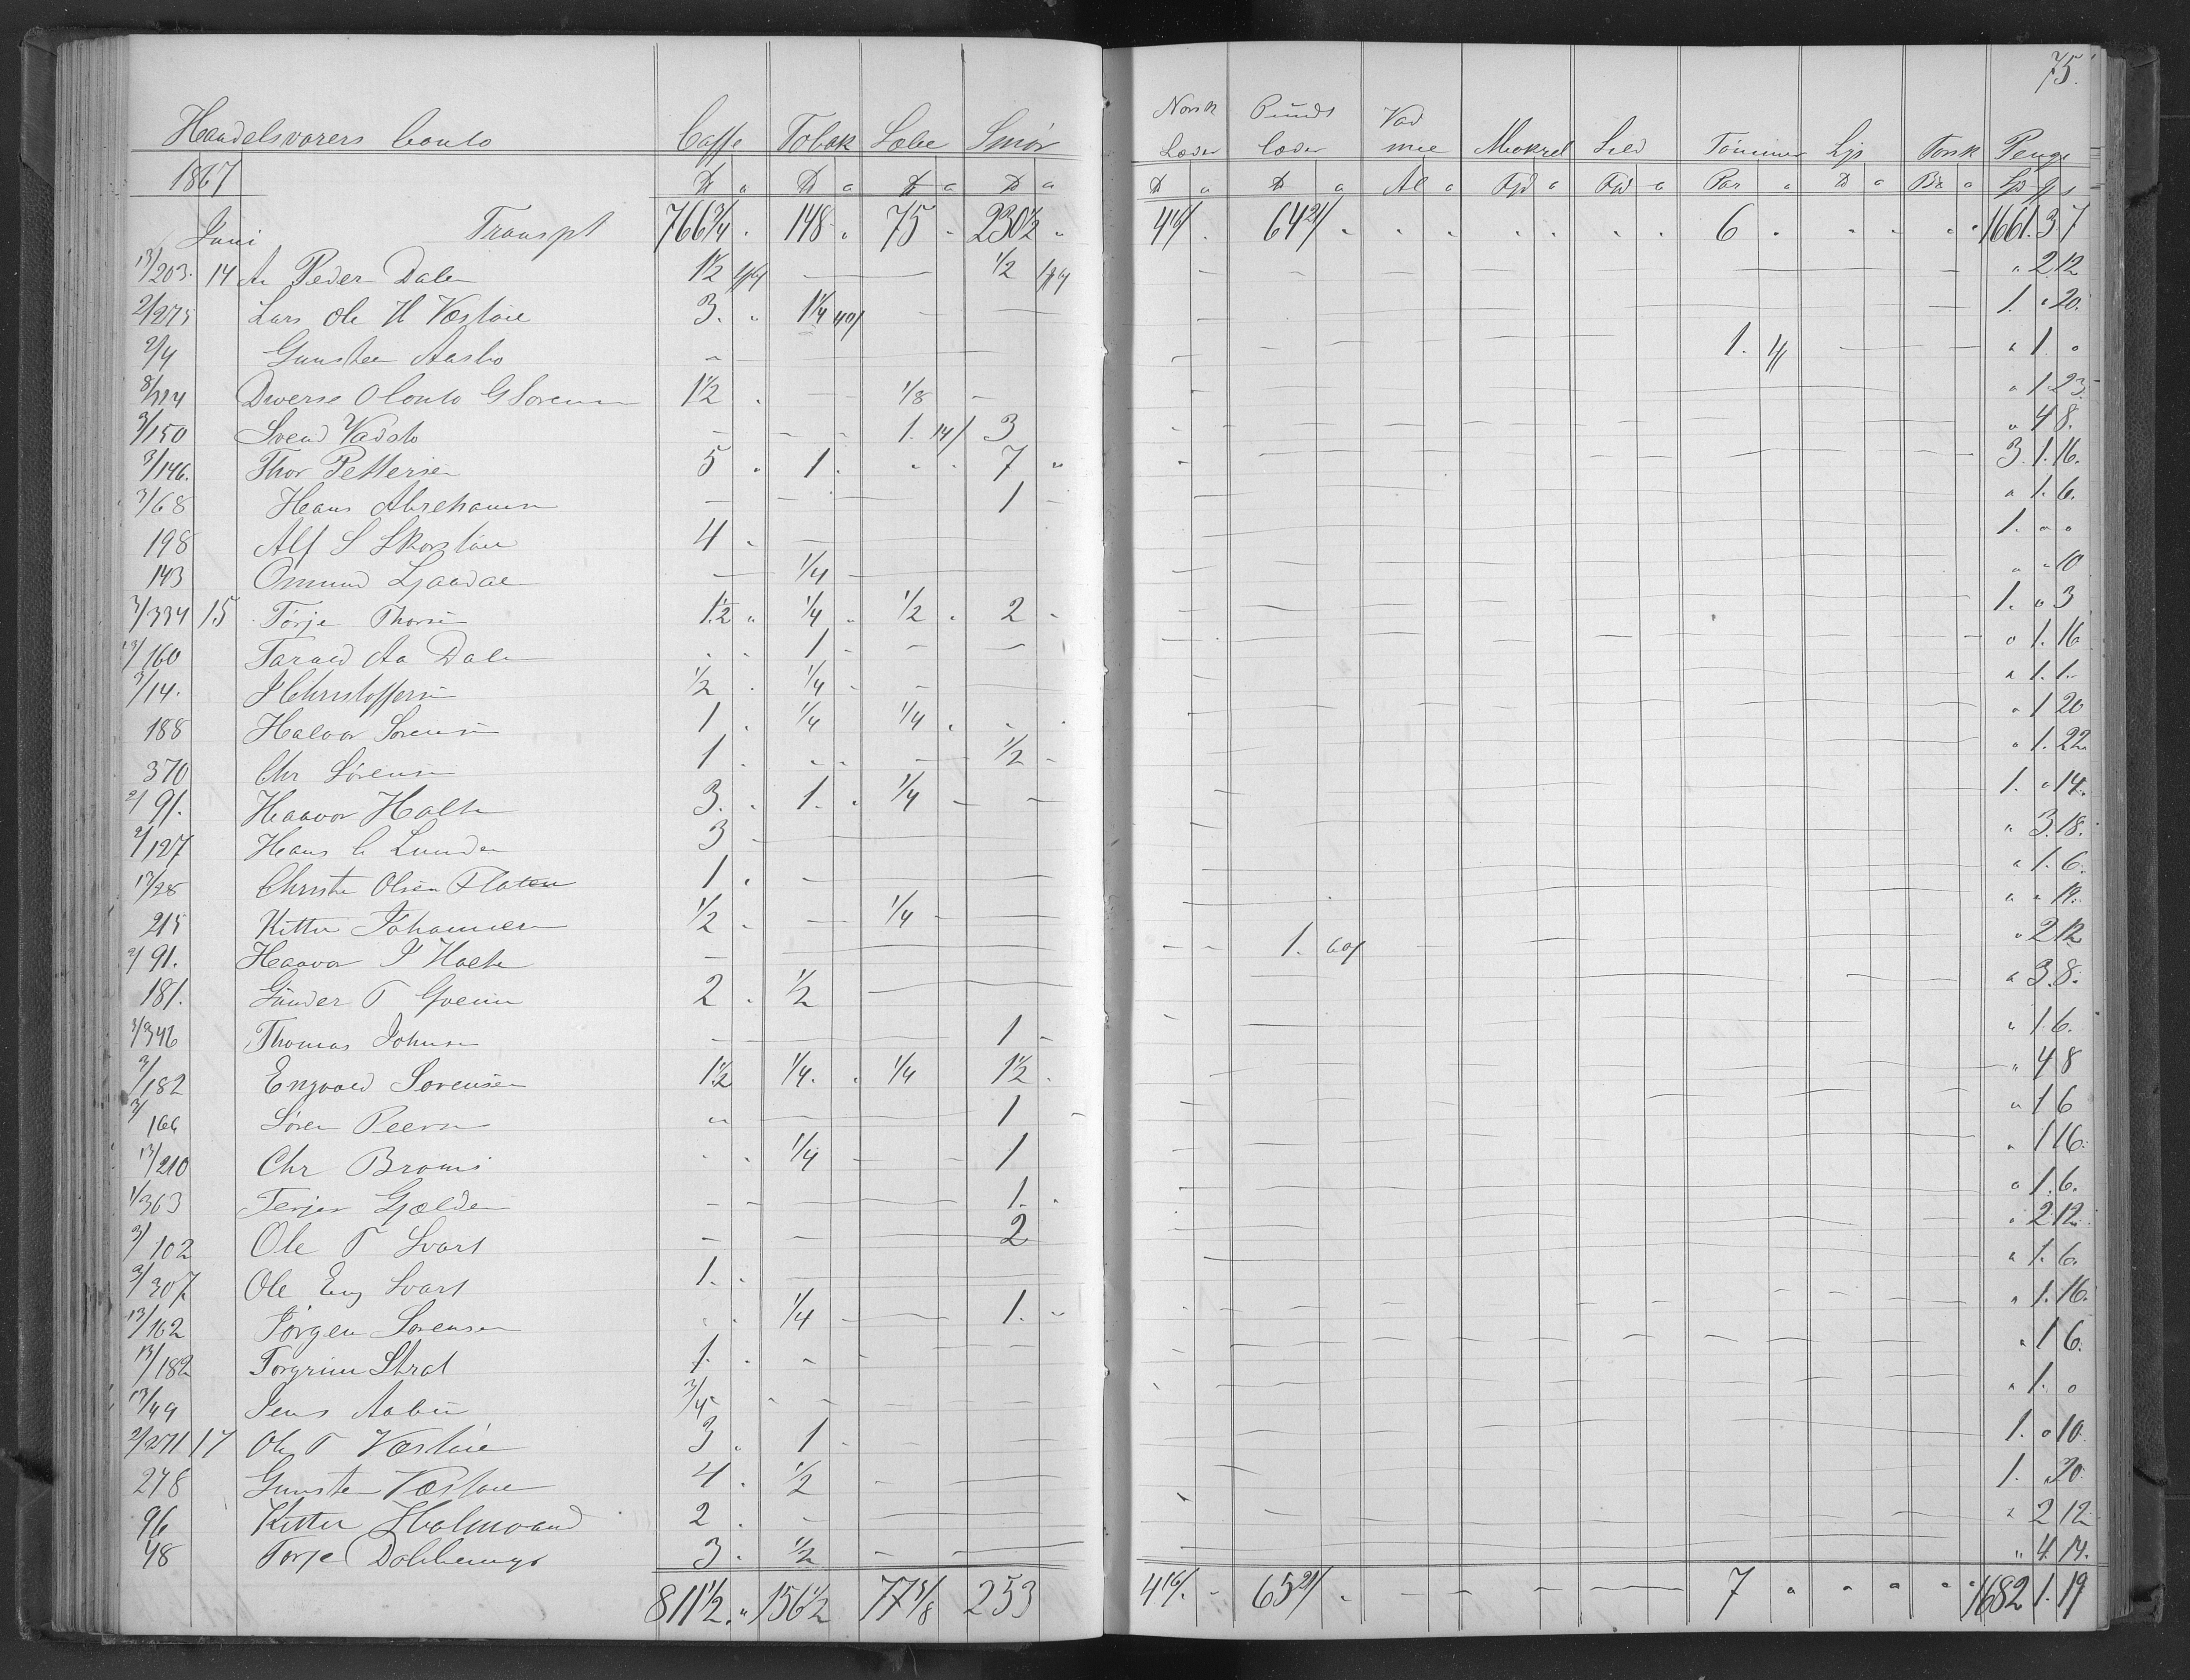 75.
Handelsvarers Conto Caffe Tobak Sæbe Smör Norsk Læder Punds læder Vad mel Makrel Sild Tömmer Lys Torsk Penge
1867 ₶ a ₶ a ₶ a ₶ a ₶ a ₶ a Al a Fjd a Par a ₶ a a Sp
Juni Transpt 766 3/4 . 148 . 75 . 230 1/2 . 64 6 . 1661. 3 7
13/203. 14 Peder Dalen 1 1/2 1/2 " 2 12
2/275 Lars Ole H Væstöie 3. " 1 1/4 40/ 1. " 20.
2/4 Gunsten Aasbo 1. " 1 "
Diverse Conto G Sorensen 1 1/2 . 1/8 " 1 23.
3/150 Svend Vadsto 1. 14/ 3 " 4 8.
3/146. Thor Pettersen 5 . 1 . " . 7 " 3. 1. 16.
3/68 Hans Abrehamsen 1 " 1. 6.
198 Alf S Skorstöen 4 . 1. " "
143 Omund Ljaadal 1/4 " " 10
3/334 15 Törje Thorsen 1 1/2 " 1/4 . 1/2 . 2 1. " 3
13/160 Tarald Aa Dalen 1 " 1. 16
3/14. J Christoffersen 1/2 . 1/4 " 1. 1.
188 Halvor Sorensen 1 . 1/4 1/4 . " 1 20
370 Chr Sörensen 1 . 1/2 " 1. 22
2/91. Haavor Holte 3. . 1. . 1/4 1. " 14.
2/127 Hans C Lunden 3 " 3. 18.
13/28 Christen Olsen Flaten 1 . " 1. 6.
215 Kittel Johannesen 1/2 . 1/4
2/91. Haavor J Holte 1. 60/ " 2 12
181. Gunder T 2 . 1/2 " 3. 8.
3/346 Thomas Johnsen 1 " 1. 6.
3/182 Engvald Sorensen 1 1/2 1/4. . 1/4 1 1/2 . " 4 8
3/166 Sören Peersen 1 " 1 6
13/210 Chr Broms 1/4 1 " 1 16.
1/363 Terjer Gjelden 1. " 1. 6.
3/102 Ole T Svart 2 " 2 12.
3/307 Ole Eng Svart 1. . " 1. 6.
13/162 Jörgen Sorensen 1/4 1. " 1. 16.
13/182 Torgrim Strat 1. . " 1 6.
13/49 Jens Aabue 3/4 " 1. "
2/271 17 Ole T Væstöie 3 . 1 . 1. " 10.
278 Gunsten Væstöie 4 . 1/2 1. " 20
96 Kittel Holmvand 2 . " 2 12
48 Torje 3 . 1/2 " 4 14.
811 1/2 . " 156 1/2 77 5/8 253 65 7 1682 1. 19